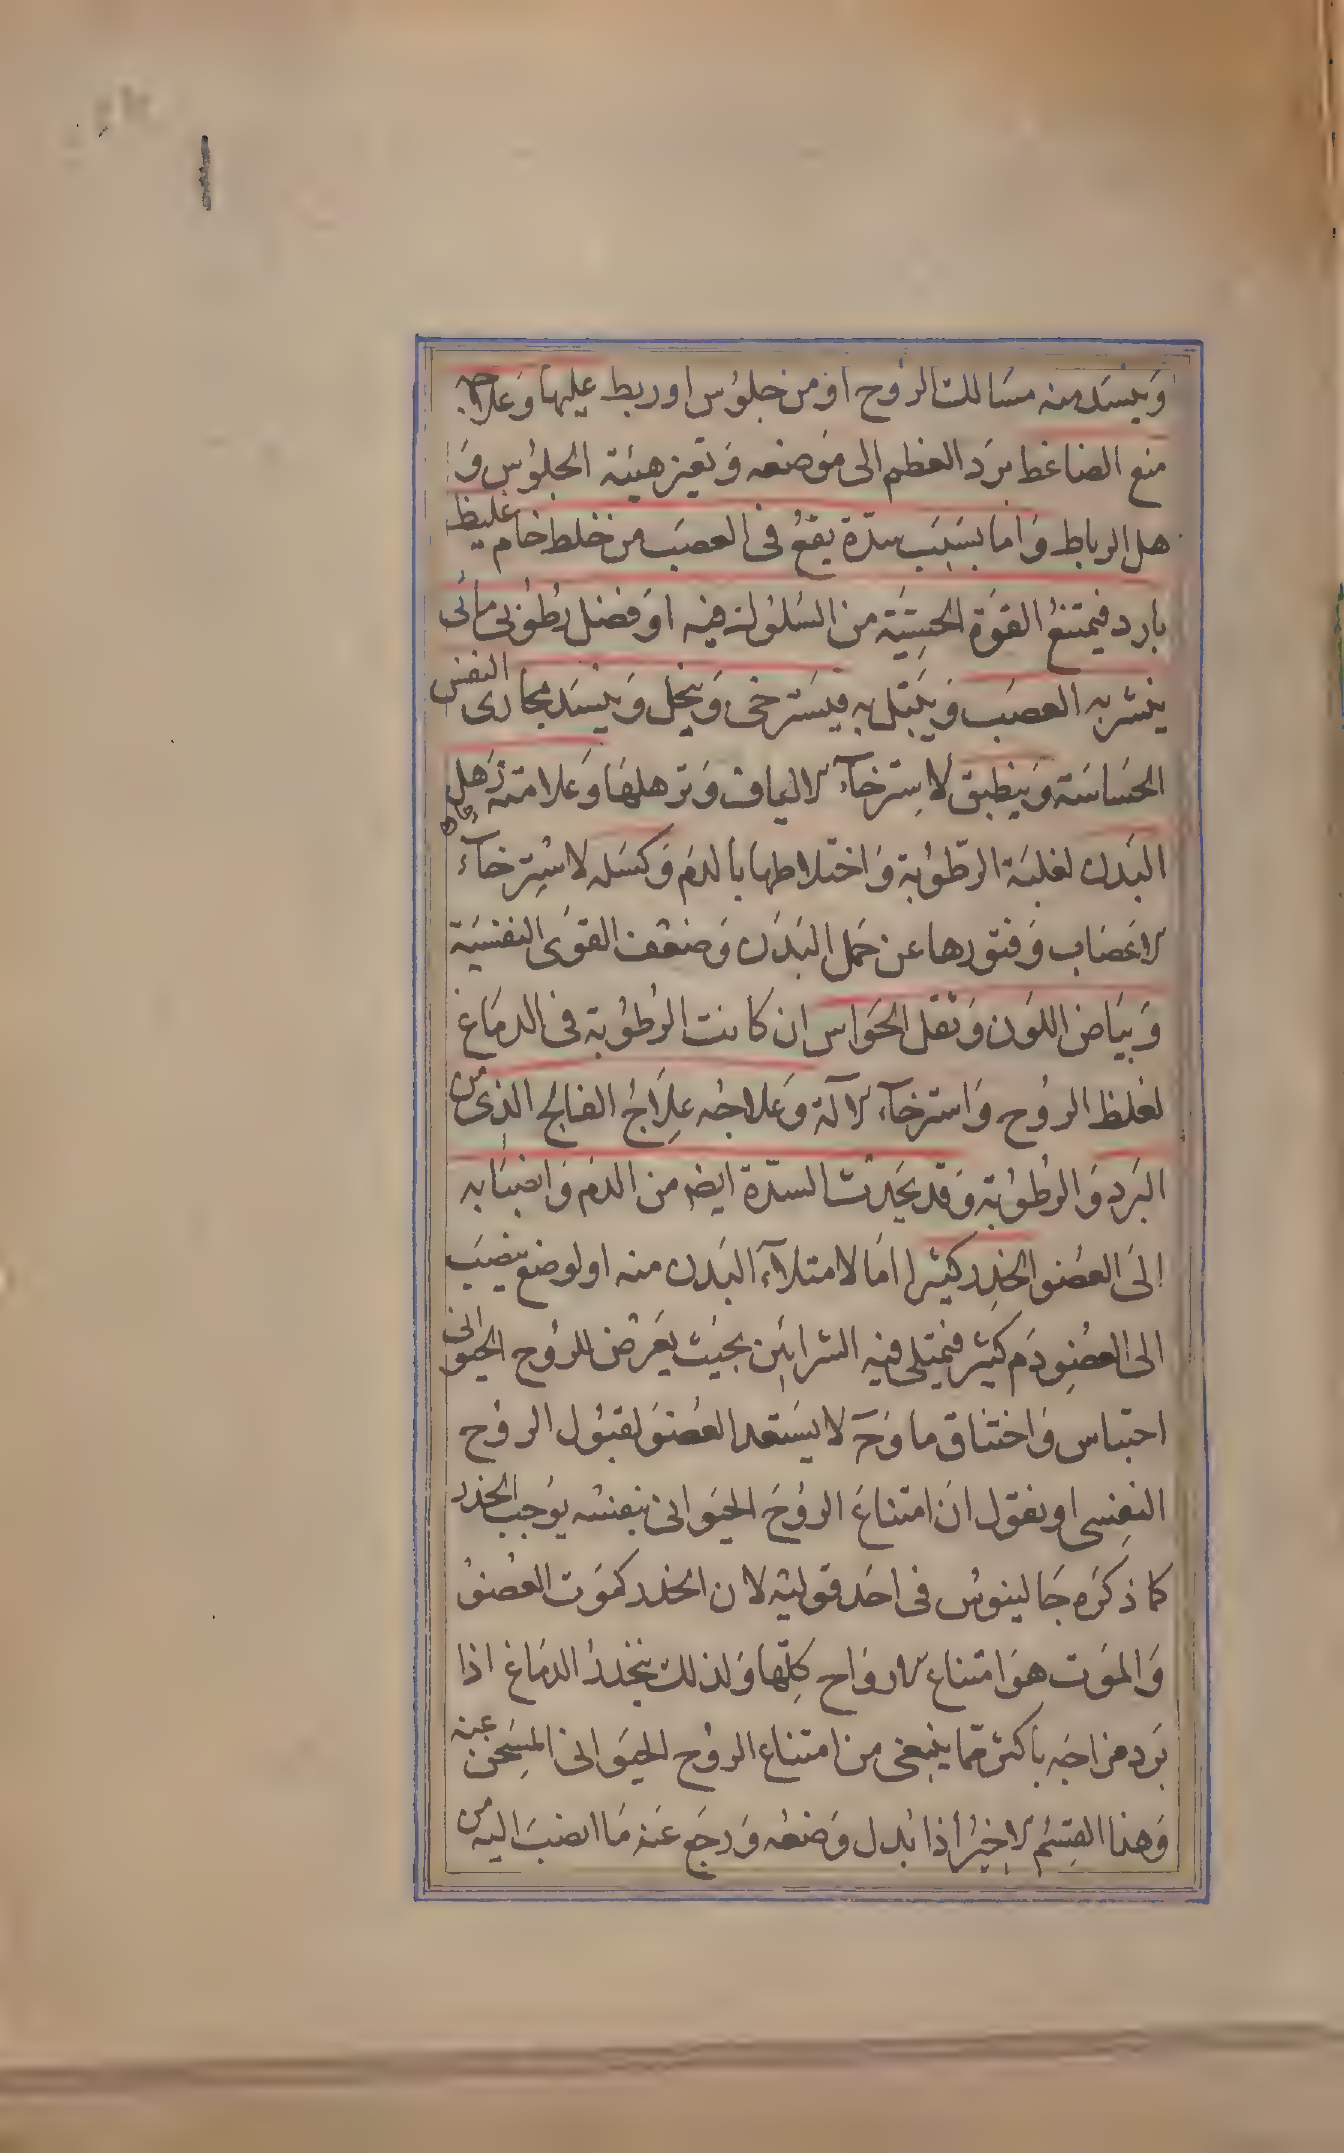 وينسد منه مسالك الروح او من جلوس او ربط عليها وعلاجه
منع الضاغط برد العظم الى موضعه وتغير هيئة الجلوس و
حل الرباط واما بسبب سدة يقع فى العصب من خلط خام غليظ
بارد فيمتنع القوة الحسية من السلوك فيه او فضل رطوبى مائى
ينشر به العصب ويبتل به فيسترخى وينحل وينسد مجارى النفس
الحساسة وينطبق لاسترخآء الالياف وترهلها وعلامته ترهل
البدن لغلبة الرطوبة واختلاطها بالدم وكسله لاسترخآء
الاعضاب وفتورها عن حمل البدن وضعف القوى النفسية
وبياض اللون وثقل الحواس ان كانت الرطوبة فى الدماغ
لغلظ الروح واسترخآء الالة وعلاجه علاج الفالج الذى من
البرد والرطوبة وقد يحدث السدة ايضا من الدم وانصبابه
الى العضو الخدر كثيرا اما لامتلآء البدن منه او لوضع ينصب
الى العضو دم كثير فيمتلى فيه الشرايين بحيث يعرض للروح الحيوانى
احتباس واختناق ما وح لا يستعد العضو لقبول الروح
النفسى او نقول ان امتناع الروح الحيوانى بنفسه يوجب الخدر
كما ذكره جالينوس فى احد قوليه لان الخدر كموت العضو
والموت هو امتناع الارواح كلها ولذلك يخدر الدماغ اذا
برد مزاجه باكثر مما ينبغى من امتناع الروح الحيوانى المسخن عنه
وهذا القسم الاخير اذا بدل وضعه ورجع عنه ما انصب اليه من